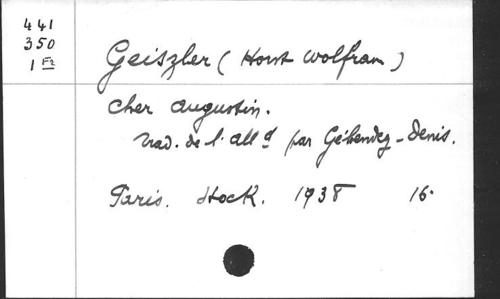 441
350
1 Fz
Geiszler (Horst Wolfram)
Cher Augustin.
Trad. de l'all d par Géhendez-Denis.
Paris. Stock. 1938 16.